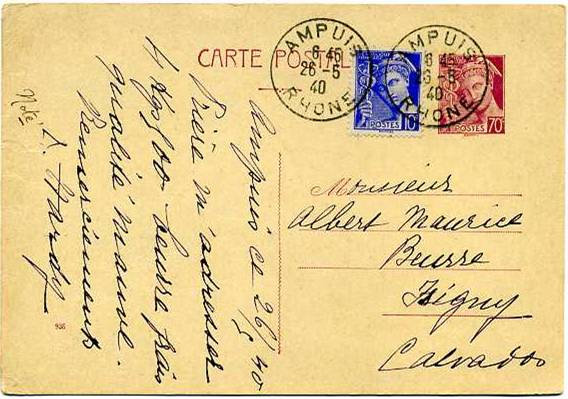 CARTE POSTALE
AMPUIS
6 45
26-5
40
RHONE
AMPUIS
6 45
26-5
40
RHONE
POSTES
10
POSTES
70
Ampuis ce 26/5 40
Prière m'adresser
4 kgs 500 beurre frais
qualité mauve.
Remerciements
A. Nardy
Noté
Monsieur
Albert Maurice
Beurre
Isigny
Calvados
936